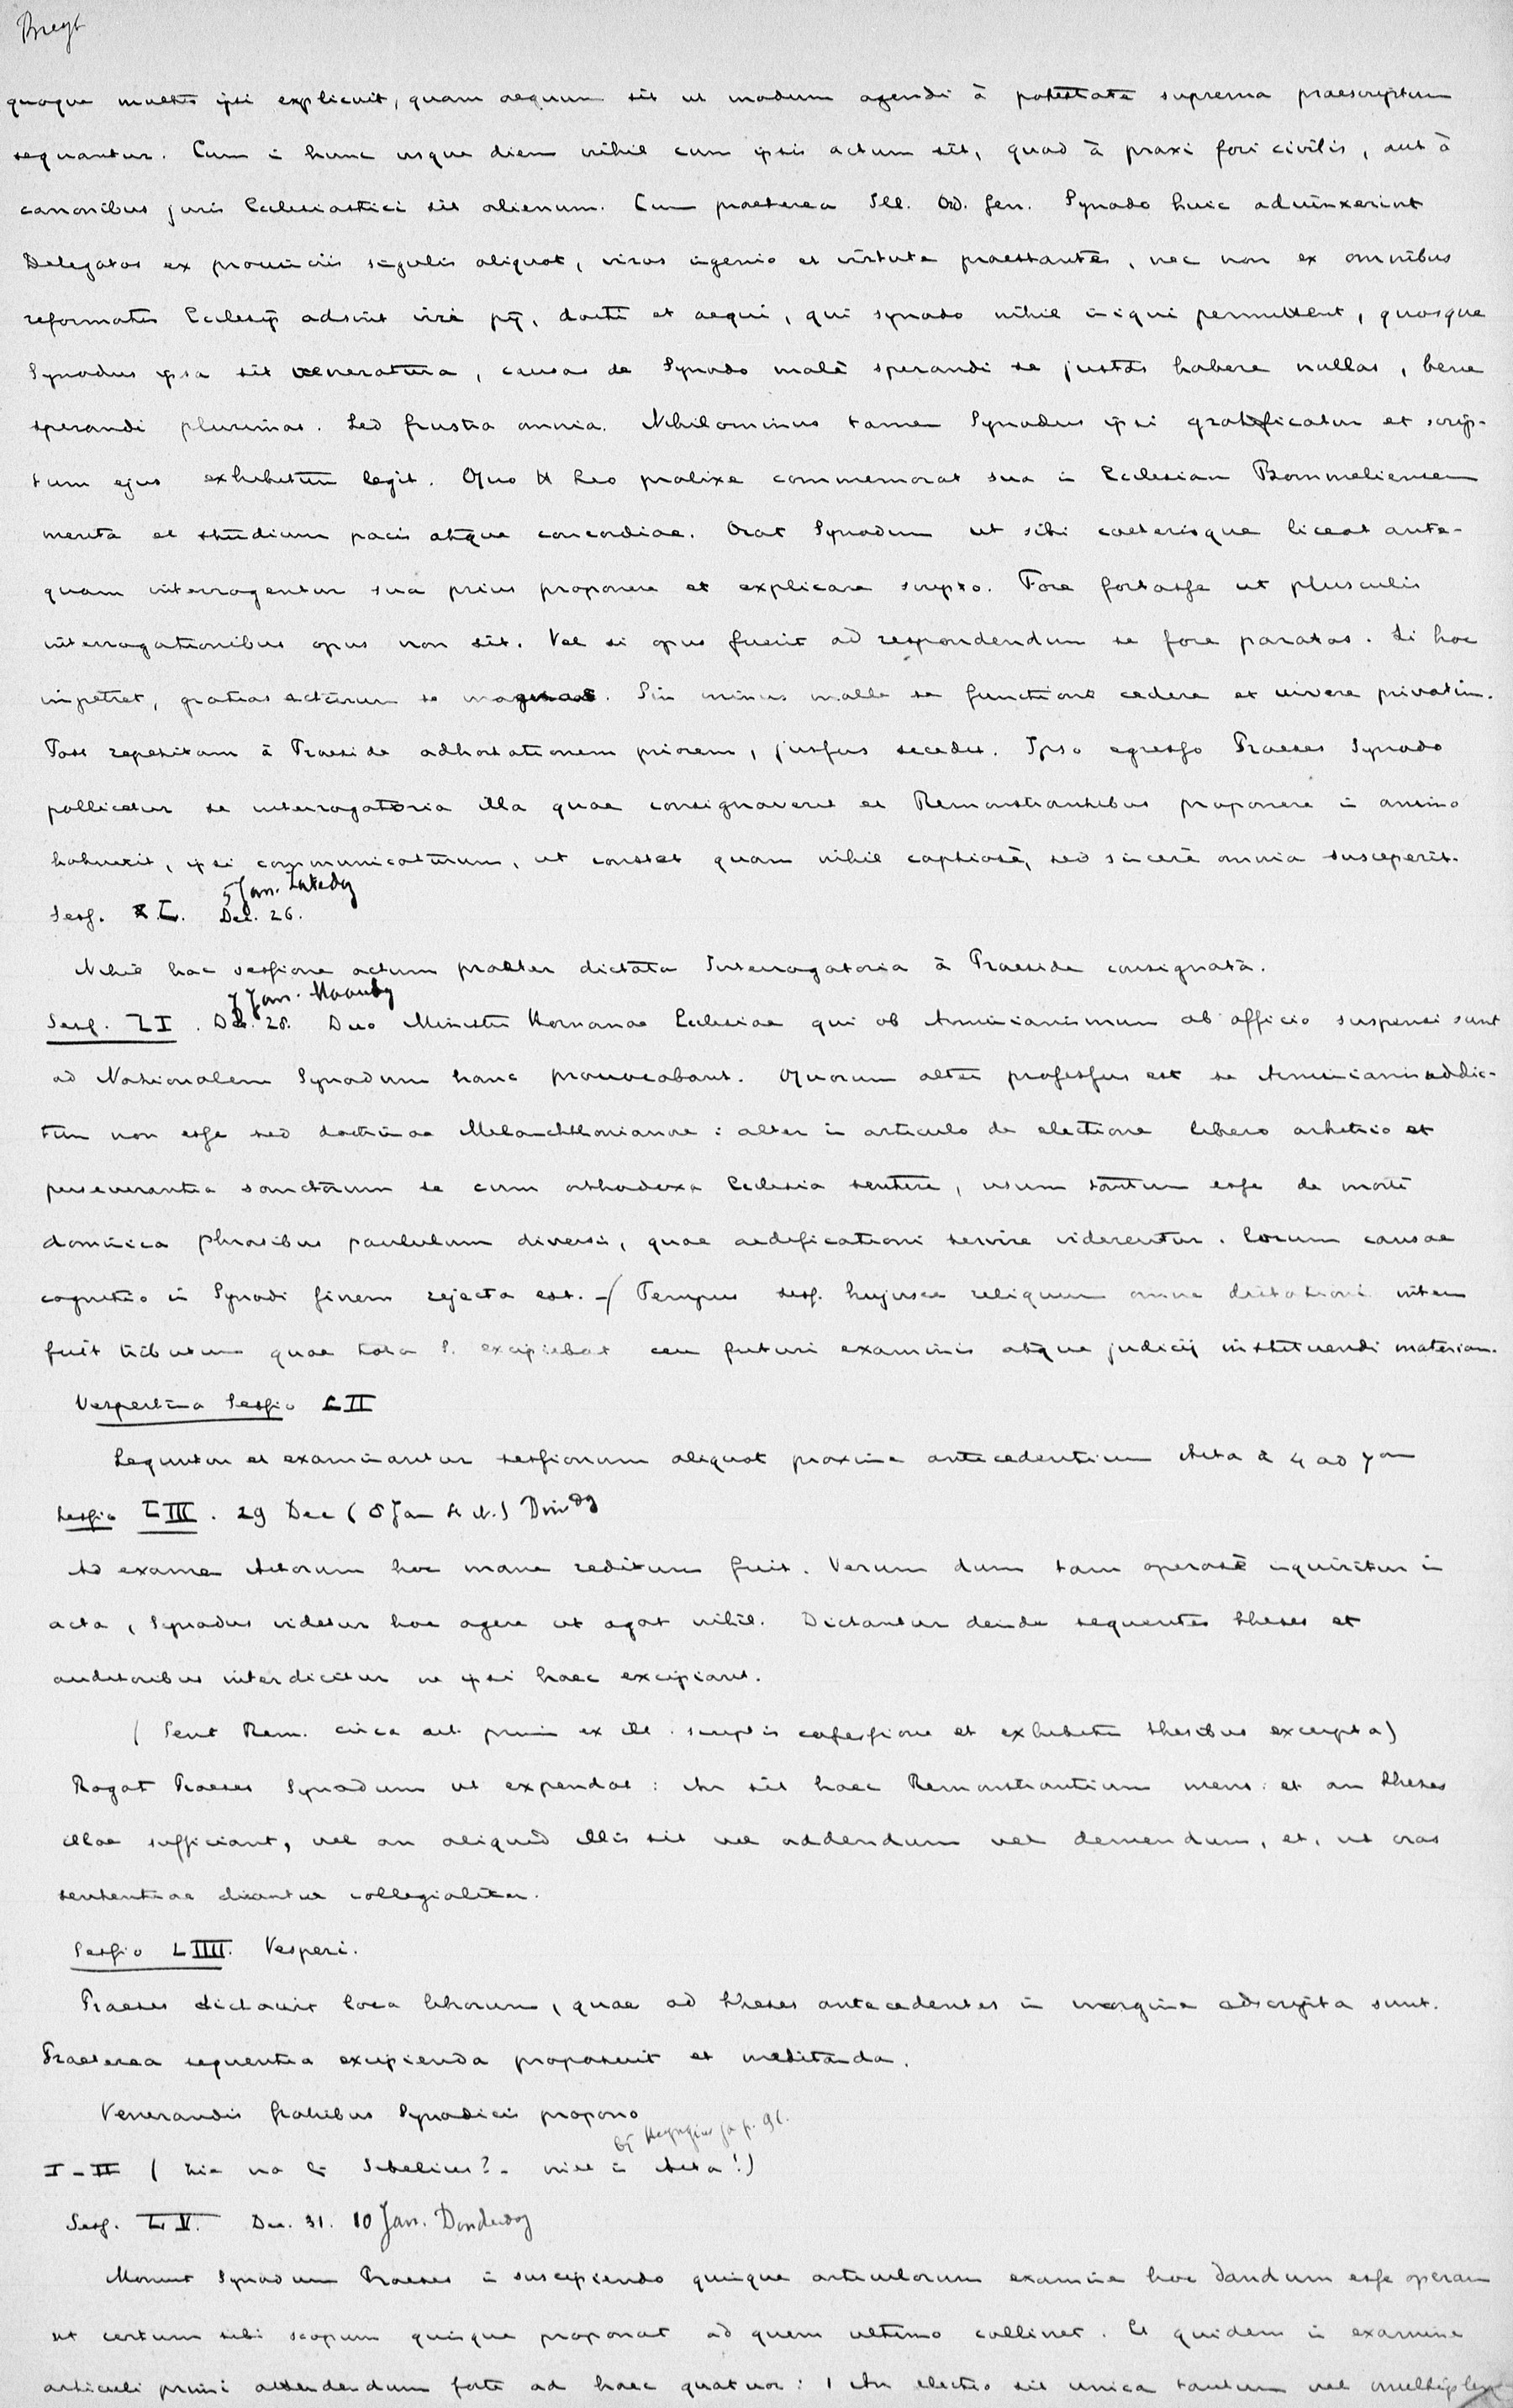 Breyt
quoque multis ipsi explicuit, quam aequum sit ut modum agendi à potestate suprema praescriptum
sequantur. Cum in hunc usque diem nihil cum ipsis actum sit, quod à praxi fori civilis, aut à
canonibus juris Ecclesiastici sit alienum. Cum praeterea Ill. Ord. Gen. Synodo huic adiunxerint
Delegatos ex provinciis singulis aliquot, viros ingenio et virtute praestantes, nec non ex omnibus
reformatis Ecclesijs adsint viri pij, docti et aequi, qui synodo nihil iniqui permittent, quosque
Synodus ipsa sit veneratura, causas de Synodo malè sperandi se justas habere nullas, bene
sperandi plurimas. Sed frustra omnia. Nihilominus tamen Synodus ipsi gratificatur et scrip-
tum ejus exhibitum legit. Quo Leo prolixe commemorat sua in Ecclesiam Bommeliensem
merita et studium pacis atque concordiae. Orat Synodum ut sibi caeterisque liceat ante-
quam interrogentur sua prius proponere et explicare scripto. Fore fortasse ut plusculis
interrogationibus opus non sit. Vel si opus fuerit ad respondendum se fore paratos. Si hoc
impetret, gratias acturum se magnas. Sin minus malle se functione cedere et vivere privatim.
Post repetitam à Praeside adhortationem priorem, jussus secedit. Ipso egresso Praeses Synodo
pollicetur se interrogatoria illa quae consignaverit et Remonstrantibus proponere in animo
habuerit, ipsi communicaturum, ut constet quam nihil captiosè, sed sincerè omnia susceperit.
5 Jan. Zaterdag
Sess. L. Dec. 26.
Nihil hac sessione actum praeter dictata Interrogatoria à Praeside consignata.
7 Jan. Maandag
Sess. LI. Dec. 28. Duo Ministri Hornanae Ecclesiae qui ob Arminianismum ab officio suspensi sunt
ad Nationalem Synodum hanc provocabant. Quorum alter professus est se Arminianis addic-
tum non esse sed doctrinae Melanchthonianae: alter in articulo de electione libero arbitrio et
perseverantia sanctorum se cum orthodoxa Ecclesia sentire, usum tantum esse de morte
dominica phrasibus paululum diversis, quae aedificationi servire viderentur. Eorum causae
cognitio in Synodi finem rejecta est. -/ Tempus sess. hujusce reliquum omne dictationi
fuit tributum quae tota S. excipiebat ceu futuri examinis atque judicij instituendi materiam.
Vespertina Sessio LII
Leguntur et examinantur sessionum aliquot proxime antecedentium Acta à 4 ad 7am
Sessio LIII. 29 Dec (8 Jan St. N.) Dinsdg
Ad examen Actorum hoc mane reditum fuit. Verum dum tam operosè inquiritur in
acta, Synodus videtur hoc agere ut agat nihil. Dictantur deinde sequentes theses et
auditoribus interdicitur ne ipsi haec excipiant.
(Sent Rem. circa art. primi ex ill. scriptis confessione et exhibitis thesibus excerpta)
Rogat Praeses Synodum ut expendat: An sit haec Remonstrantium mens: et an theses
illae sufficiant, vel an aliquid illis sit vel addendum vel demendum, et, ut cras
sententiae dicantur collegialiter.
Sessio LIIII. Vesperi.
Praeses dictavit loca librorum, quae ad theses antecedentes in margine adscripta sunt.
Praeterea sequentia excipienda proposuit et meditanda.
Venerandis fratribus Synodicis propono
bij Heyngius ja p. 96.
I-II (zie na bij Sibelius? - niet in Acta!)
Sess. LV. Dec. 31. 10 Jan. Donderdag
Monuit Synodum Praeses in suscipiendo quinque articulorum examine hoc dandum esse operam
ut certum sibi scopum quisque proponat ad quem ultimo collinet. Et quidem in examine
articuli primi attendendum forte ad haec quatuor: 1 An electio sit unica tantum vel multiplex